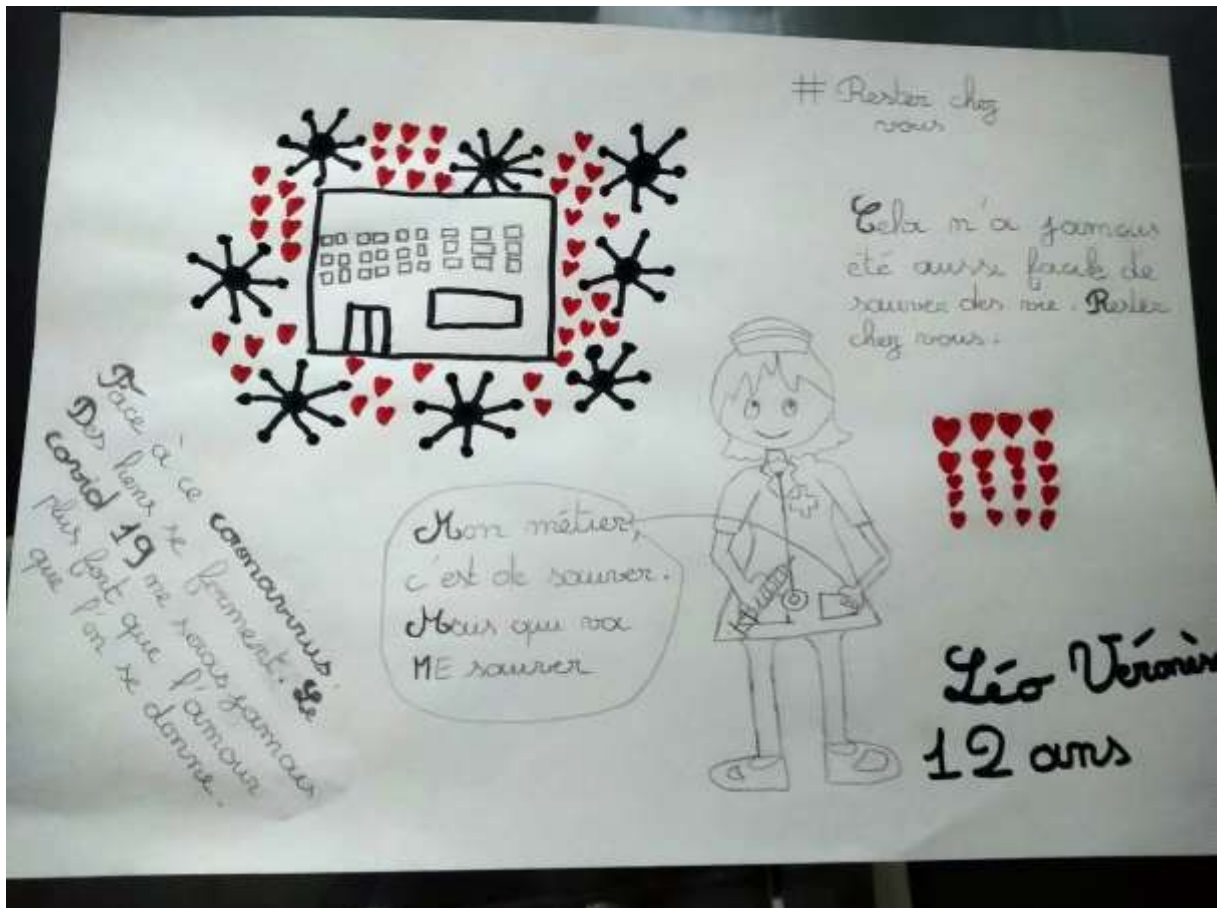 # Rester chez
vous
Cela n'a jamais
été aussi facile de
sauver des vie. Rester
chez vous.
Face à ce coronavirus.
Des liens se forment. Le
covid 19 ne serais jamais
plus fort que l'amour
que l'on se donne.
Mon métier,
c'est de sauver.
Mais qui va
ME sauver
Léo
12 ans